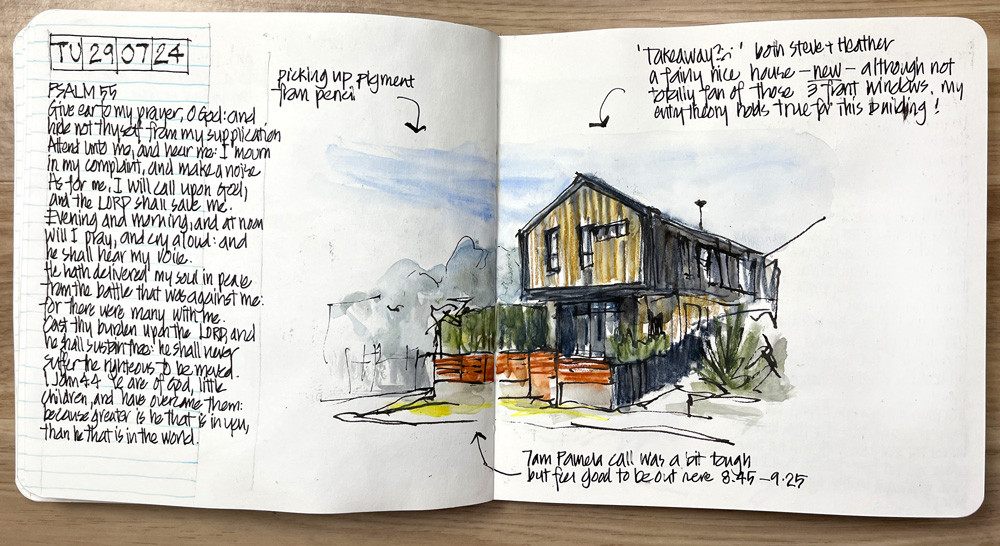 TU 29 07 24
PSALM 55
Give ear to my prayer, O God: and
hide not thyself from my supplication
Attend unto me, and hear me: I mourn
in my complaint, and make a noise
As for me, I will call upon God;
and the LORD shall save me.
Evening and morning, and at noon
will I pray, and cry aloud: and
he shall hear my voice.
He hath delivered my soul in peace
from the battle that was against me:
for there were many with me.
Cast thy burden upon the LORD, and
he shall sustain thee: he shall never
suffer the righteous to be moved.
1 John 4:4 Ye are of God, little
children, and have overcome them:
because greater is he that is in you,
than he that is in the world.
picking up pigment
from pencil
'Takeaway?' both Steve + Heather
a fairly nice house - new - although not
totally fan of those 3 front windows. my
entry theory holds true for this building!
7am Pamela call was a bit tough
but feel good to be out here 8.45 - 9.25